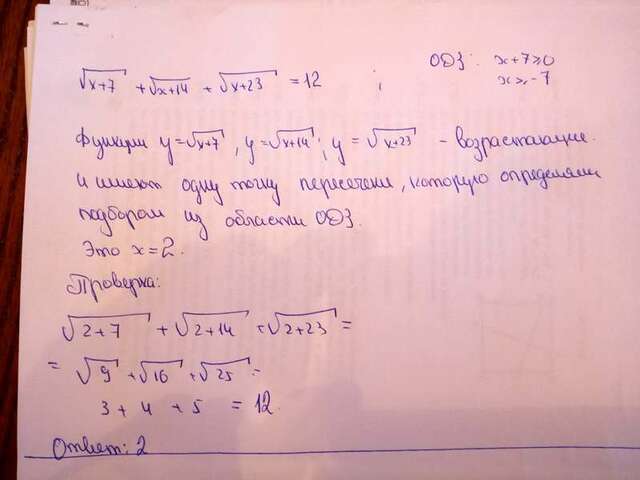 √x+7 + √x+14 + √x+23 = 12 ; ОДЗ: x+7≥0
x≥-7
Функции y=√x+7, y=√x+14; y=√x+23 - возрастающие.
и имеют одну точку пересечения, которую определяем
подбором из области ОДЗ.
Это x=2.
Проверка:
√2+7 + √2+14 + √2+23 =
= √9 + √16 + √25 =
3 + 4 + 5 = 12.
Ответ: 2